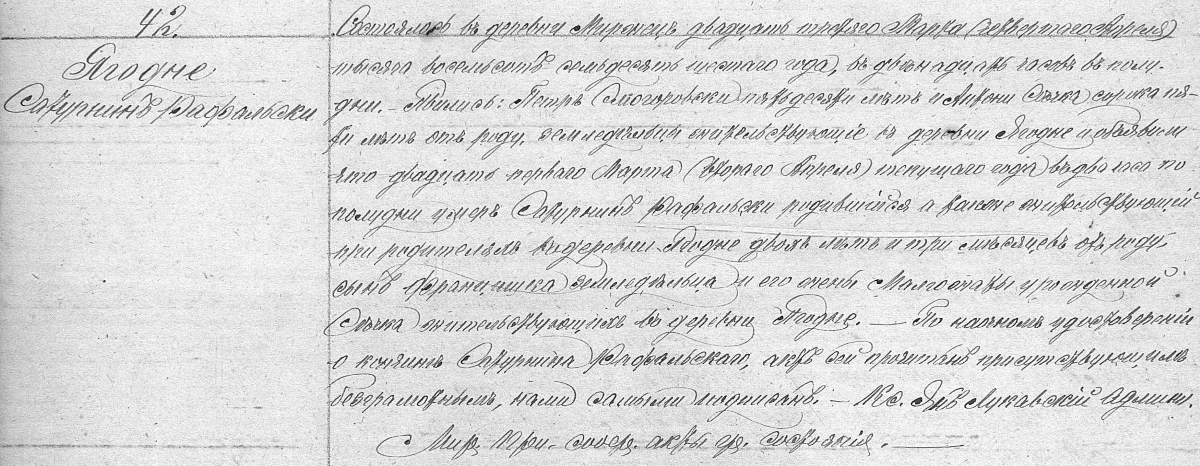 42.
Ягодне
Сатурнинъ Рафальски
Состоялось въ деревни двадцать третяго Марта (четвертаго Апреля)
тысяча восемьсотъ семьдесятъ шестаго года, въ двѣнадцать часовъ въ полу-
дни. – Явились: Петръ пятьдесяти лѣтъ и Антони Сѣчка сорока пя-
ти лѣтъ отъ роду, земледѣльцы жительствующіе въ деревни Ягодне и объявили
что двадцать перваго Марта (втораго Апреля) текущаго года въ два часа по
полудни умеръ Сатурнинъ Рафальски родившійся а также жительствующій
при родителяхъ въ деревни Ягодне двохъ лѣтъ и три мѣсяцевъ отъ роду,
сынъ Францишка земледѣльца и его жены Малгожаты урожденной
Сѣчка жительствующихъ въ деревни Ягодне. – По удостовереніи
о кончинѣ Сатурнина Рафальскаго, актъ сей прочитанъ присутствующимъ
безграмотнымъ, нами самыми подписанъ. – Кс. Янъ Лукавскій Админ.
акты гр. состоянія.